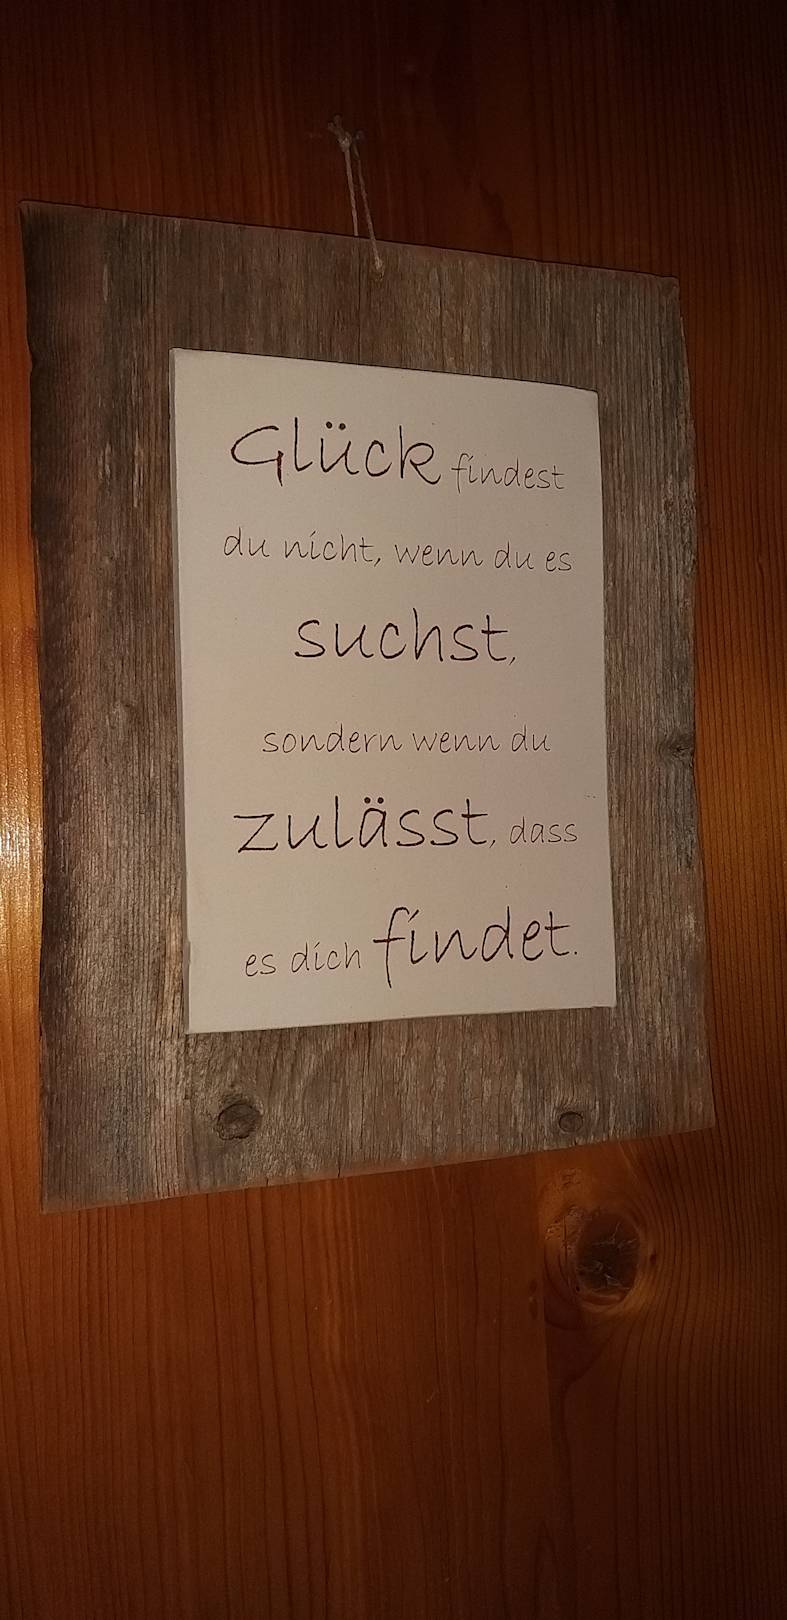 Glück findest
du nicht, wenn du es
suchst,
sondern wenn du
zulässt, dass
es dich findet.